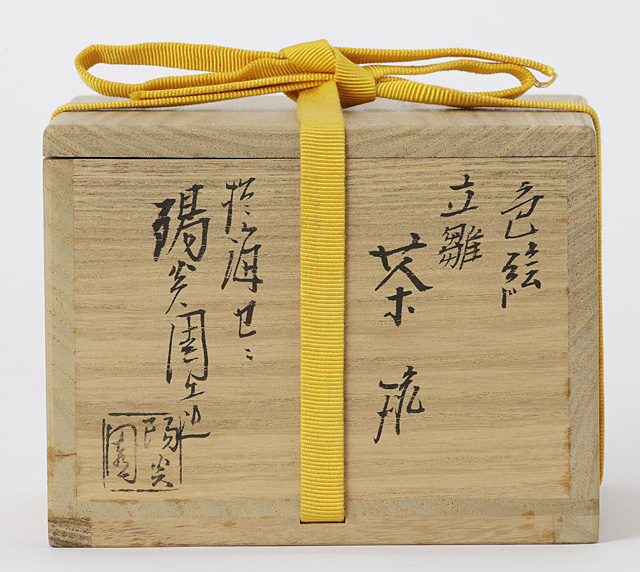 色絵
立雛
茶碗
陽炎園造
陽炎
園